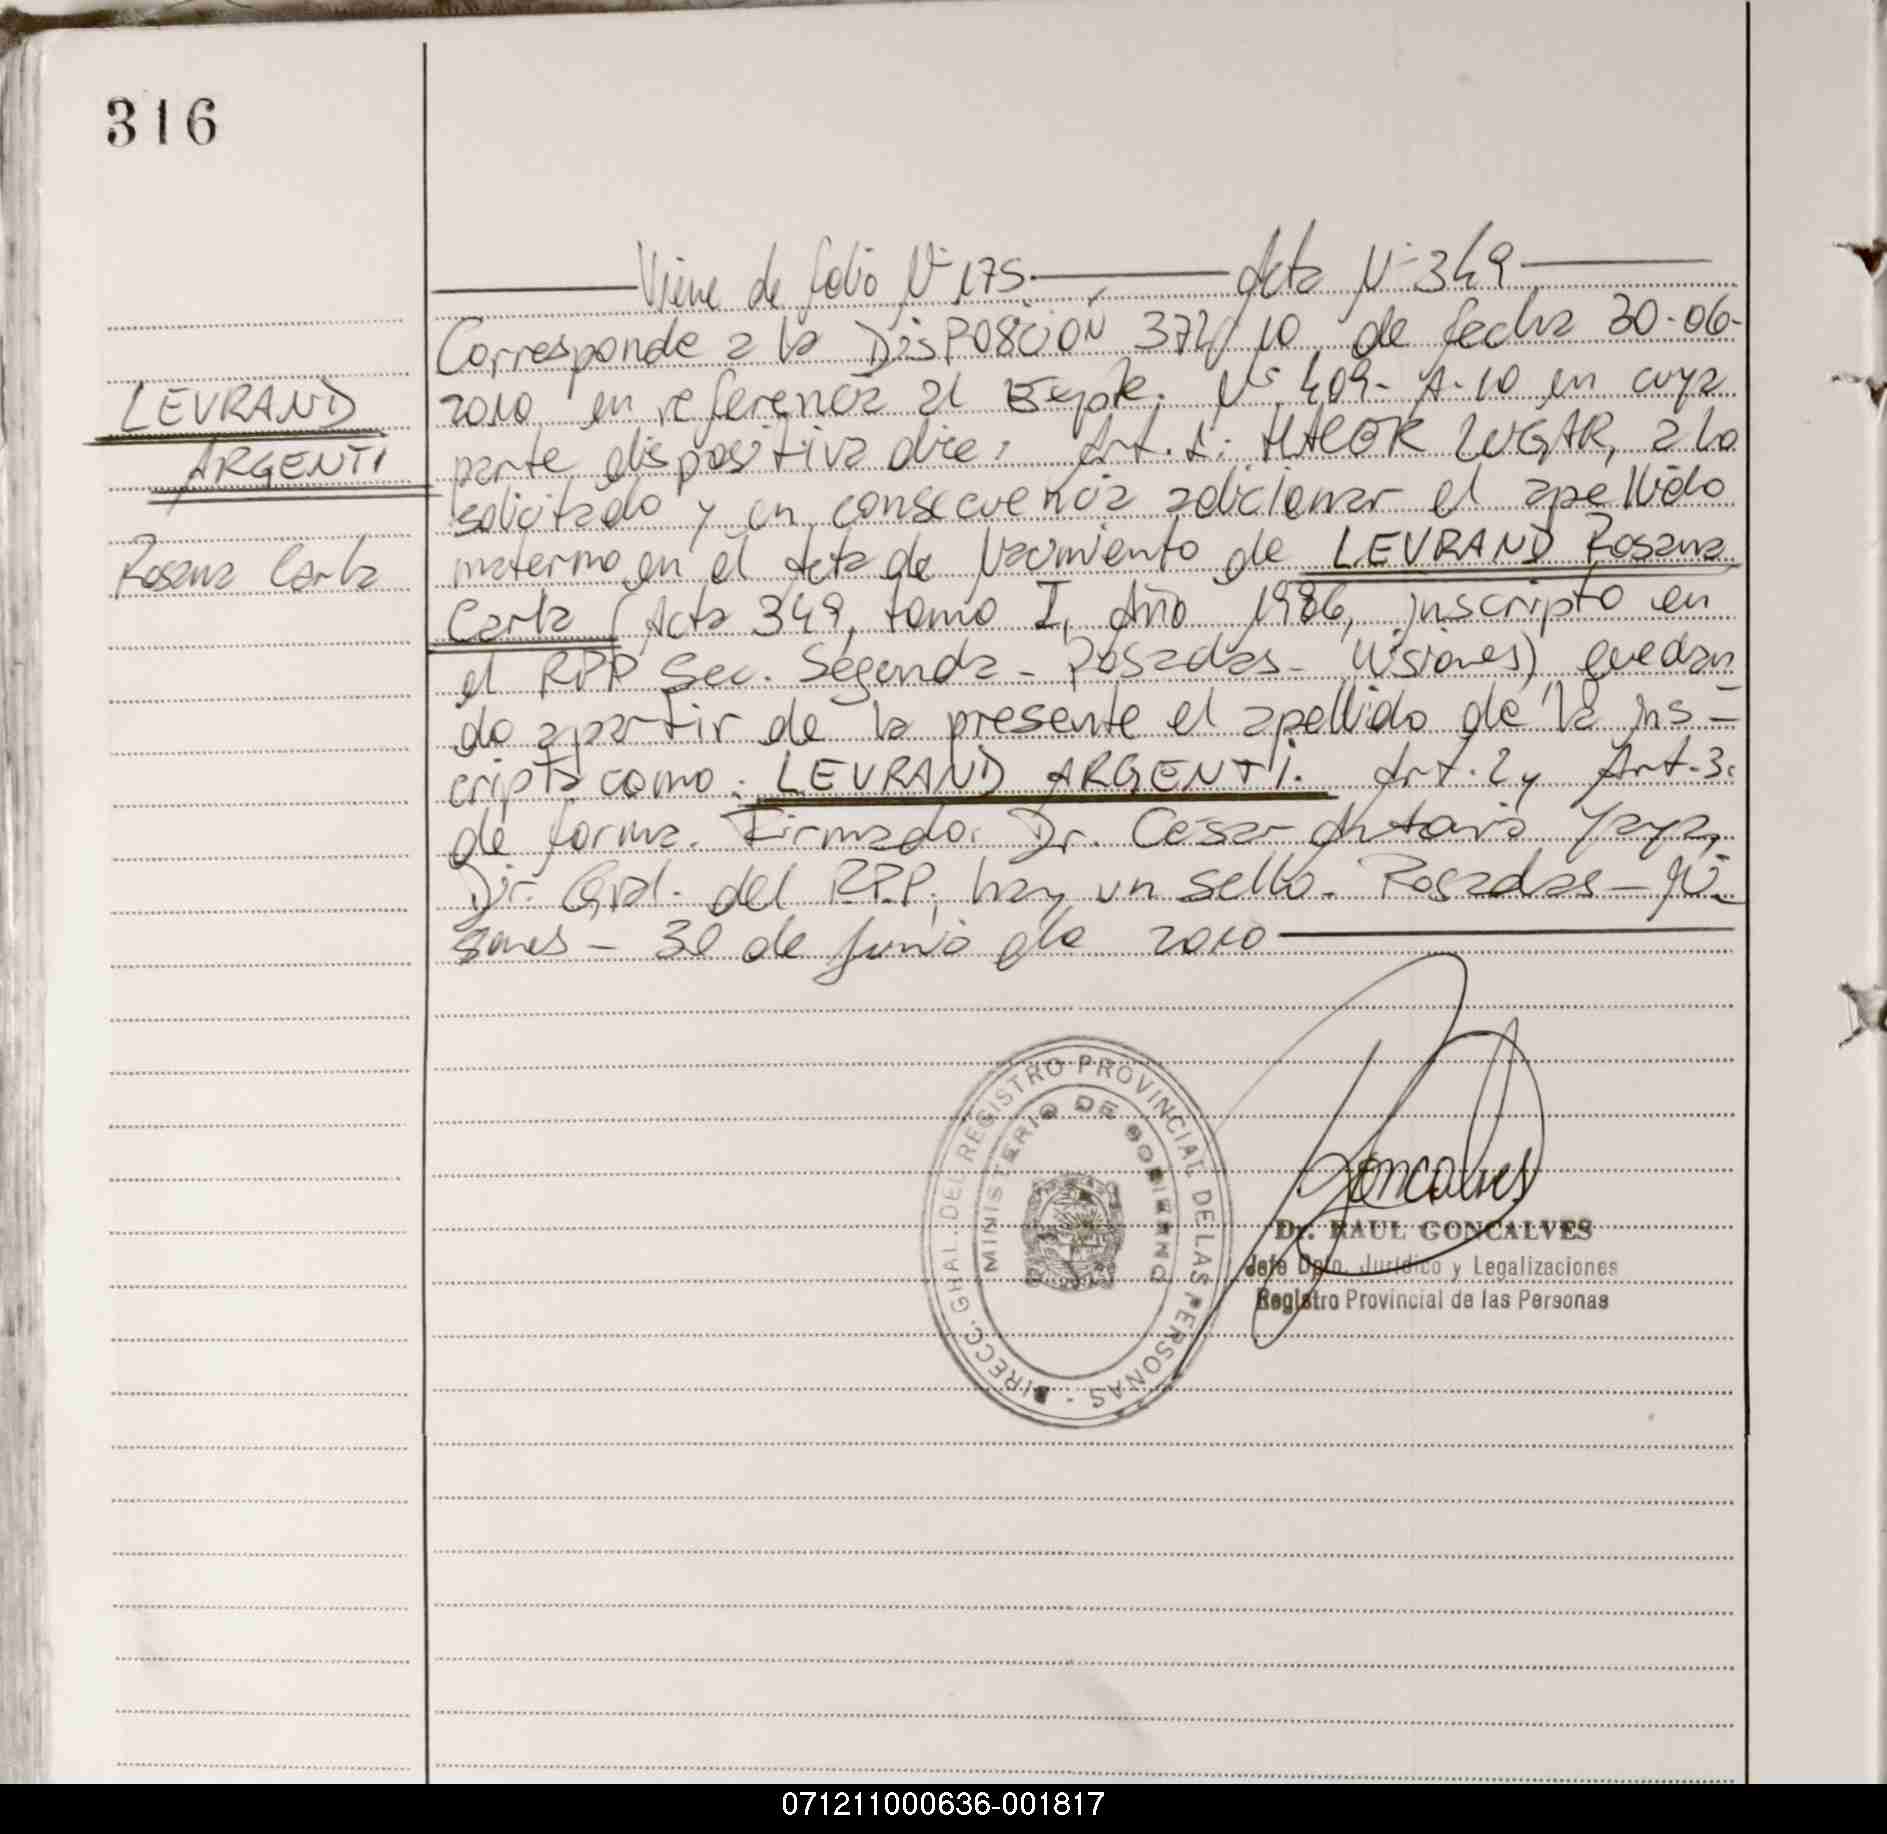 316
Viene de folio Nº 175 Acta Nº 349
Corresponde a la DISPOSICION 372/10 de fecha 30-06-
2010 en referencia al Expte. Nº 409-A-10 en cuya
parte dispositiva dice: Art. 1: HACER LUGAR, a lo
solicitado y en consecuencia adicionar el apellido
materno en el Acta de Nacimiento de LEVRAND Rosana
Carla (Acta 349, tomo I, Año 1986, inscripto en
el RPP Sec. Segunda - Posadas - Misiones) quedan
do a partir de la presente el apellido de la ins-
cripta como: LEVRAND ARGENTI. Art. 2 y Art. 3:
de forma. Firmado. Dr. Cesar Antonio Yaya,
Dir. Gral. del R.P.P, hay un sello. Posadas - Mi-
siones - 30 de Junio de 2010
LEVRAND
ARGENTI
Rosana Carla
DIRECC. GRAL. DEL REGISTRO PROVINCIAL DE LAS PERSONAS -
MINISTERIO DE GOBIERNO
Goncalves
Dr. RAUL GONCALVES
Jefe Dpto. Jurídico y Legalizaciones
Registro Provincial de las Personas
071211000636-001817